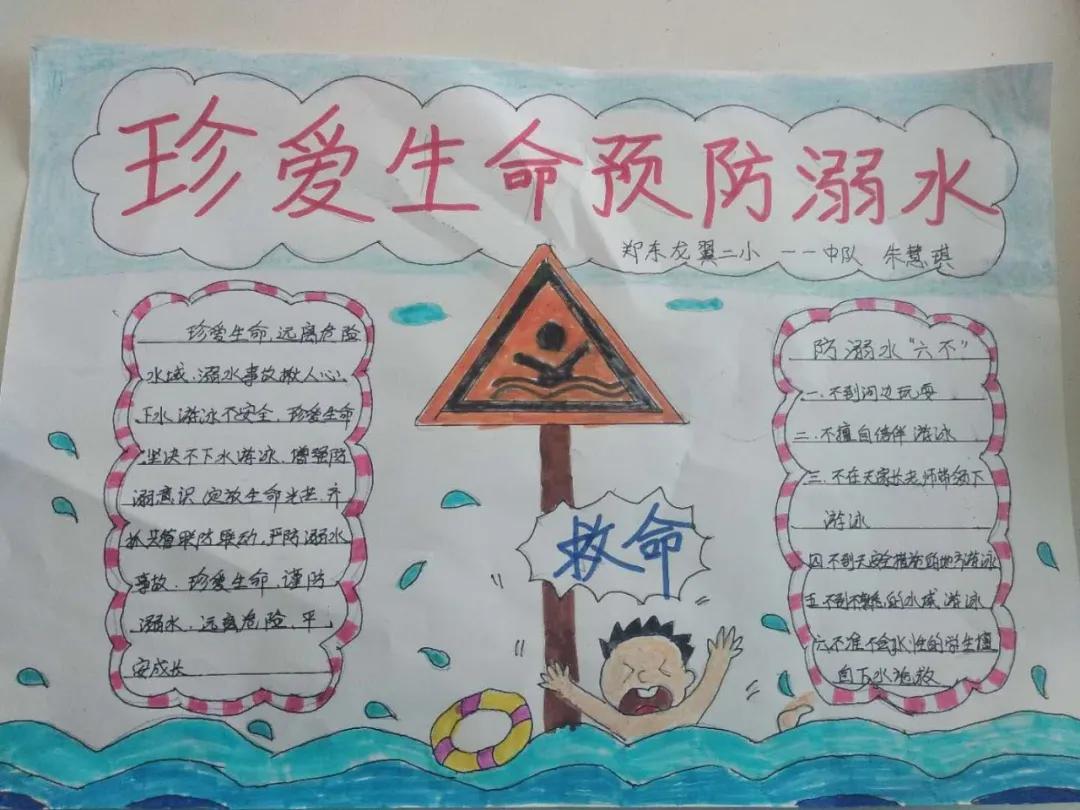 珍爱生命预防溺水
郑东龙翼二小 一一中队 朱慧琪
珍爱生命,远离危险
水域,溺水事故揪人心,
下水游泳不安全,珍爱生命
坚决不下水游泳,增强防
溺意识,绽放生命光芒,齐
抓共管联防联动,严防溺水
事故,珍爱生命,谨防
溺水,远离危险,平
安成长
救命
防溺水“六不”
一.不到河边玩耍
二.不擅自结伴游泳
三.不在无家长老师带领下
游泳
四不到无安全措施的地方游泳
五不到不熟悉的水域游泳
六不准不会水性的学生擅
自下水施救